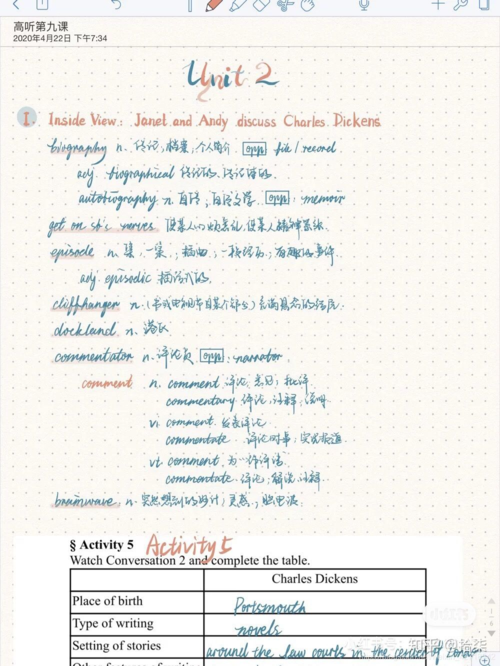 高听第九课
2020年4月22日 下午7:34
Unit 2
I. Inside View: Janet and Andy discuss Charles Dickens
biography n. 传记,档案,个人简介. opp file/record
adj. biographical 传记的.传记体的.
autobiography n. 自传;自传文学. opp: memoir
get on sb's nerves 使某人心烦意乱,使某人精神紧张
episode n. 集,一集;插曲;一段经历;有趣的事件.
adj. episodic 插话式的.
cliffhanger n.
dockland n. 港区
commentator n. 评论员 opp: narrator
comment n. comment 评论;意见;批评.
commentary 评论,注释,说明
vi comment. 发表评论
commentate. 评论时事;实况报道
vt comment. 为…作评语
commentate. 评论;解说,注释.
brainwave n. 突然想到的妙计;灵感;脑电波
§ Activity 5 Activity 5
Watch Conversation 2 and complete the table.
Charles Dickens
Place of birth Portsmouth
Type of writing novels
Setting of stories around the law courts in the center of London